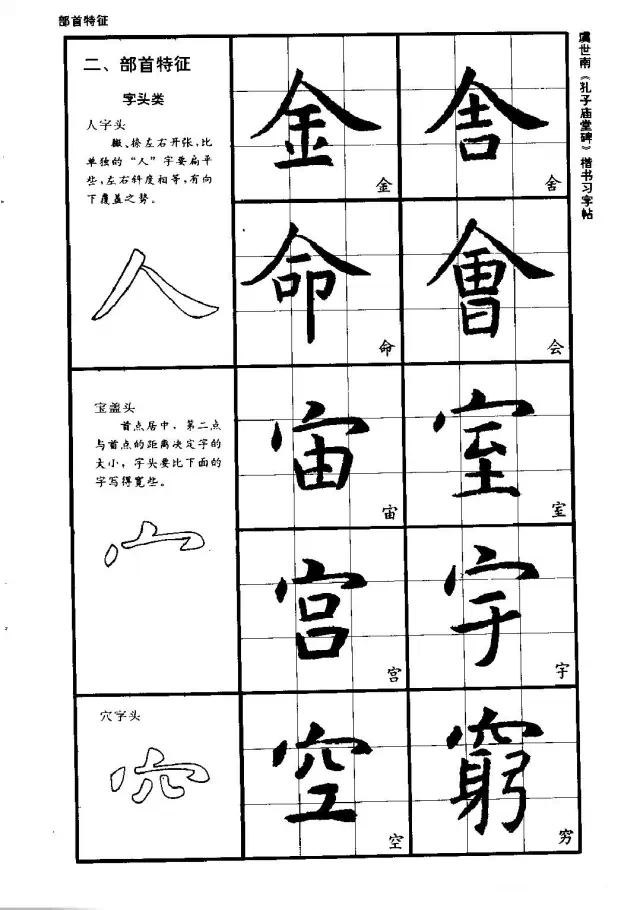 部首特征
虞世南《孔子庙堂碑》楷书习字帖
二、部首特征
字头类
人字头
撇、捺左右开张，比
单独的“人”字要扁平
些，左右斜度相等，有向
下覆盖之势。
人
金
金
舍
舍
命
命
會
会
宝盖头
首点居中，第二点
与首点的距离决定字的
大小，字头要比下面的
字写得宽些。
宀
宙
宙
室
室
宫
宫
宇
宇
穴字头
空
空
窮
穷